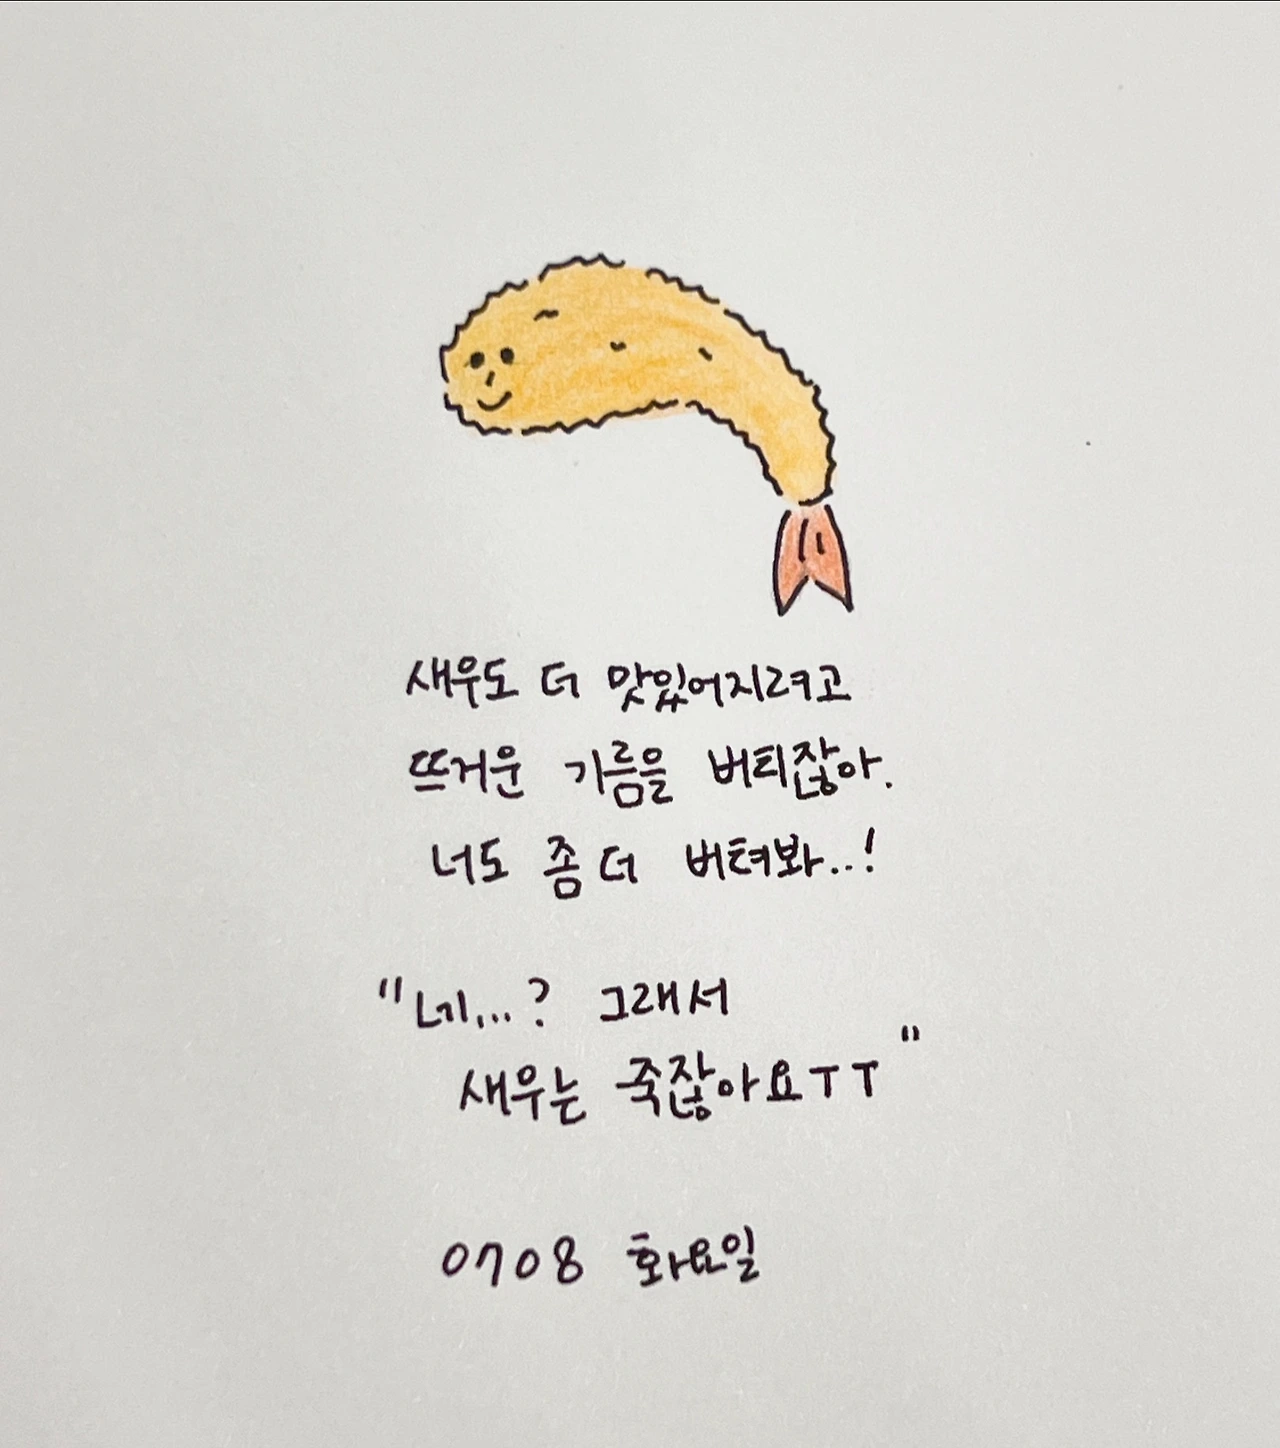 새우도 더 맛있어지려고
뜨거운 기름을 버티잖아.
너도 좀 더 버텨봐..!
"네...? 그래서
새우는 죽잖아요ㅜㅜ"
0708 화요일